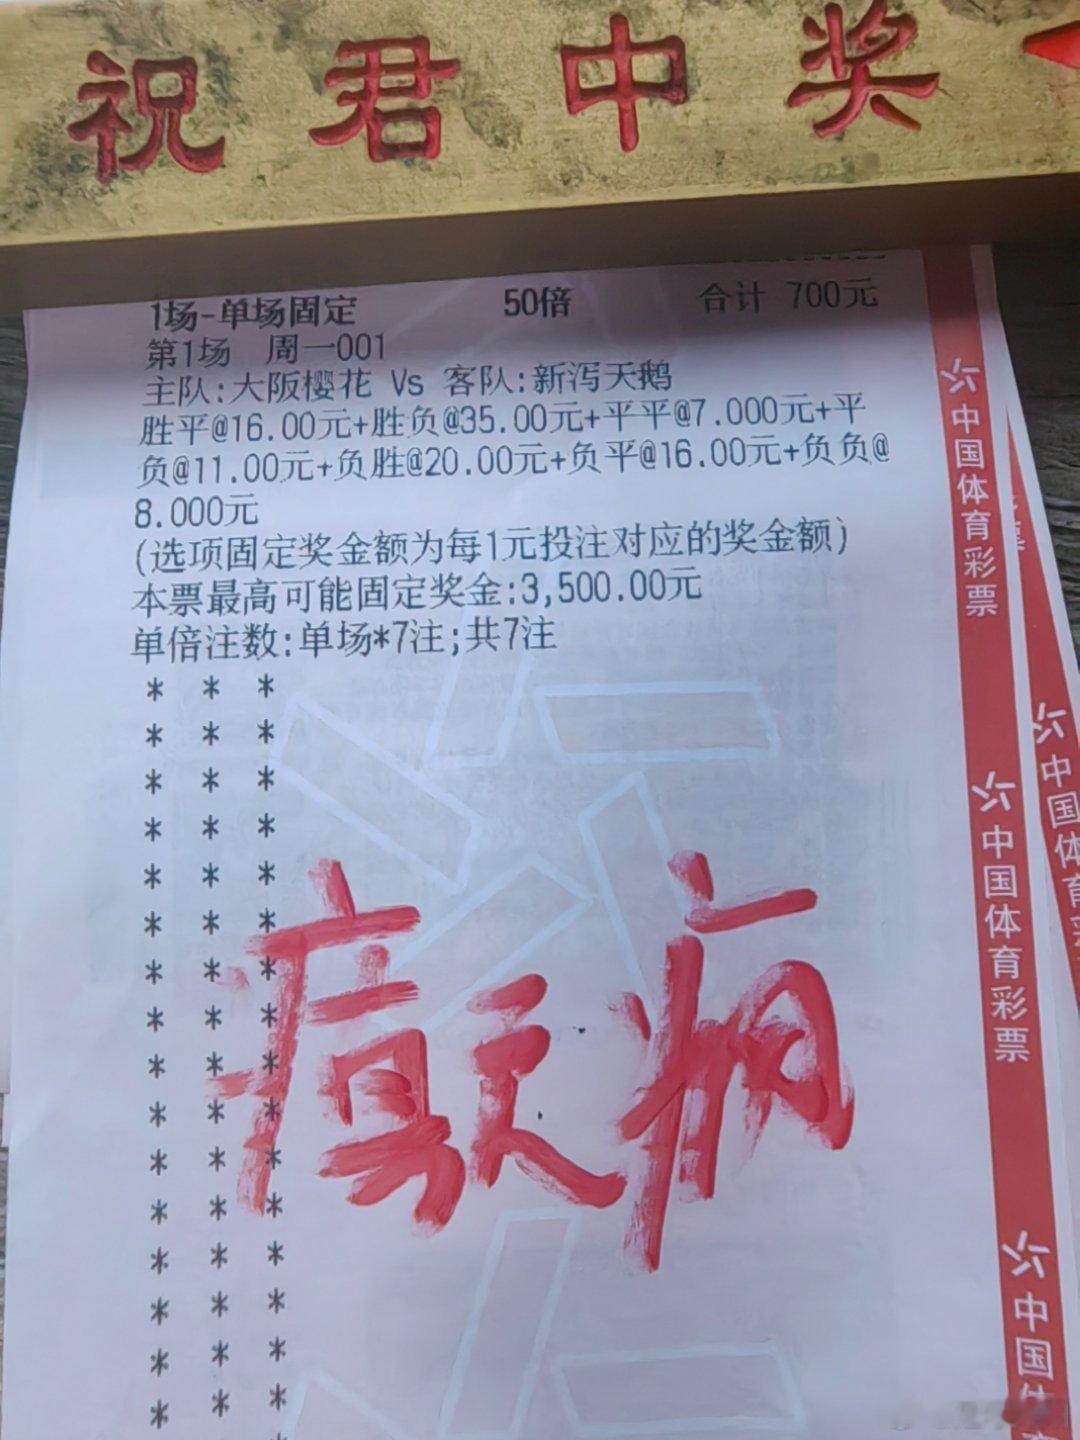 祝君中奖
1场-单场固定 50倍 合计 700元
第1场 周一001
主队:大阪樱花 Vs 客队:新泻天鹅
胜平@16.00元+胜负@35.00元+平平@7.000元+平
负@11.00元+负胜@20.00元+负平@16.00元+负负@
8.000元
(选项固定奖金额为每1元投注对应的奖金额)
本票最高可能固定奖金:3,500.00元
单倍注数:单场*7注;共7注
* * *
* * *
* * *
* * *
* * *
* * *
* * *
* * *
* * *
* * *
* * *
* * *
* * *
* * *
* * *
* * *
中国体育彩票
中国体育彩票
中国体
中国体育彩